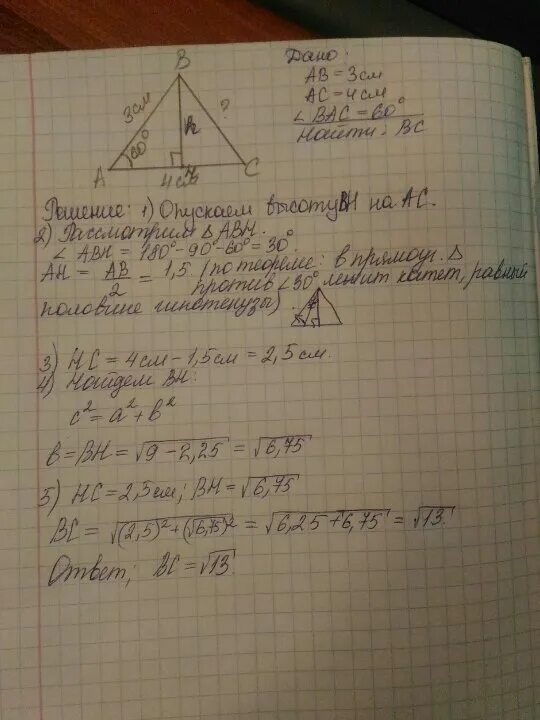 Дано:
AB = 3см
AC = 4см
∠BAC = 60°
Найти - BC
B
3см
?
h
60°
A
4см
H
C
Решение: 1) Опускаем высоту BH на AC.
2) Рассмотрим △ ABH.
∠ ABH = 180° - 90° - 60° = 30°
AH = AB/2 = 1,5 (по теореме: в прямоуг. △
против ∠30° лежит катет, равный
половине гипотенузы)
3) HC = 4см - 1,5см = 2,5 см.
4) Найдем BH:
c² = a² + b²
b = BH = √9 - 2,25 = √6,75
5) HC = 2,5см; BH = √6,75
BC = √(2,5)² + (√6,75)² = √6,25 + 6,75 = √13
Ответ; BC = √13